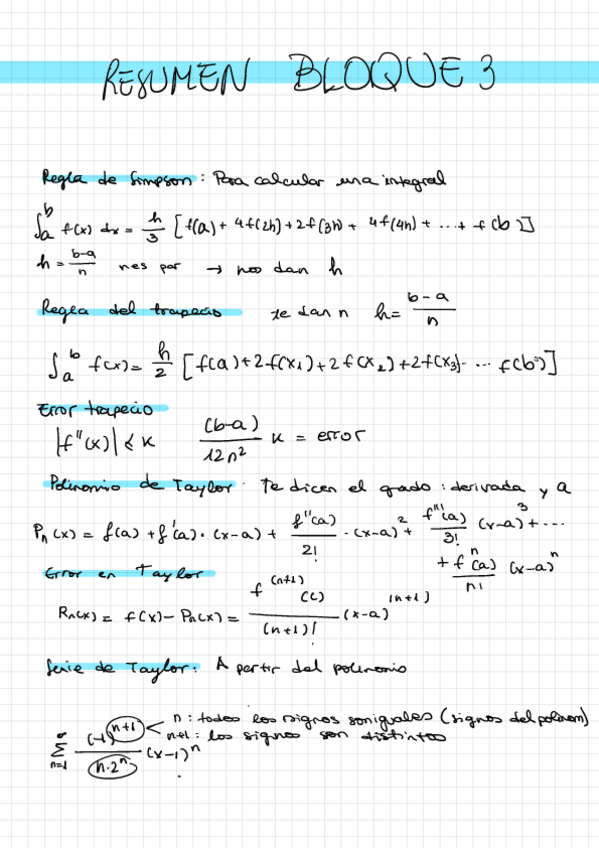 RESUMEN BLOQUE 3
Regla de Simpson: Para calcular una integral
∫ₐᵇ f(x) dx = h/3 [f(a) + 4f(2h) + 2f(3h) + 4f(4h) + ... + f(b)]
h = b-a/n n es par → nos dan h
Regla del trapecio te dan n h = b-a/n
∫ₐᵇ f(x) = h/2 [f(a) + 2f(x₁) + 2f(x₂) + 2f(x₃)- ... f(b)]
Error trapecio
|f''(x)| ≤ K (b-a)/12n² K = error
Polinomio de Taylor. Te dicen el grado: derivada y a
Pₙ(x) = f(a) + f'(a)·(x-a) + f''(a)/2! ·(x-a)² + f'''(a)/3! (x-a)³ + ...
+ fⁿ(a)/n! (x-a)ⁿ
Error en Taylor
Rₙ(x) = f(x) - Pₙ(x) = f⁽ⁿ⁺¹⁾(c)/(n+1)! (x-a)⁽ⁿ⁺¹⁾
Serie de Taylor: A partir del polinomio
n: todos los signos son iguales (signos del polinom)
n+1: los signos son distintos
∞ Σ n=1 (-1)ⁿ⁺¹/n·2ⁿ (x-1)ⁿ